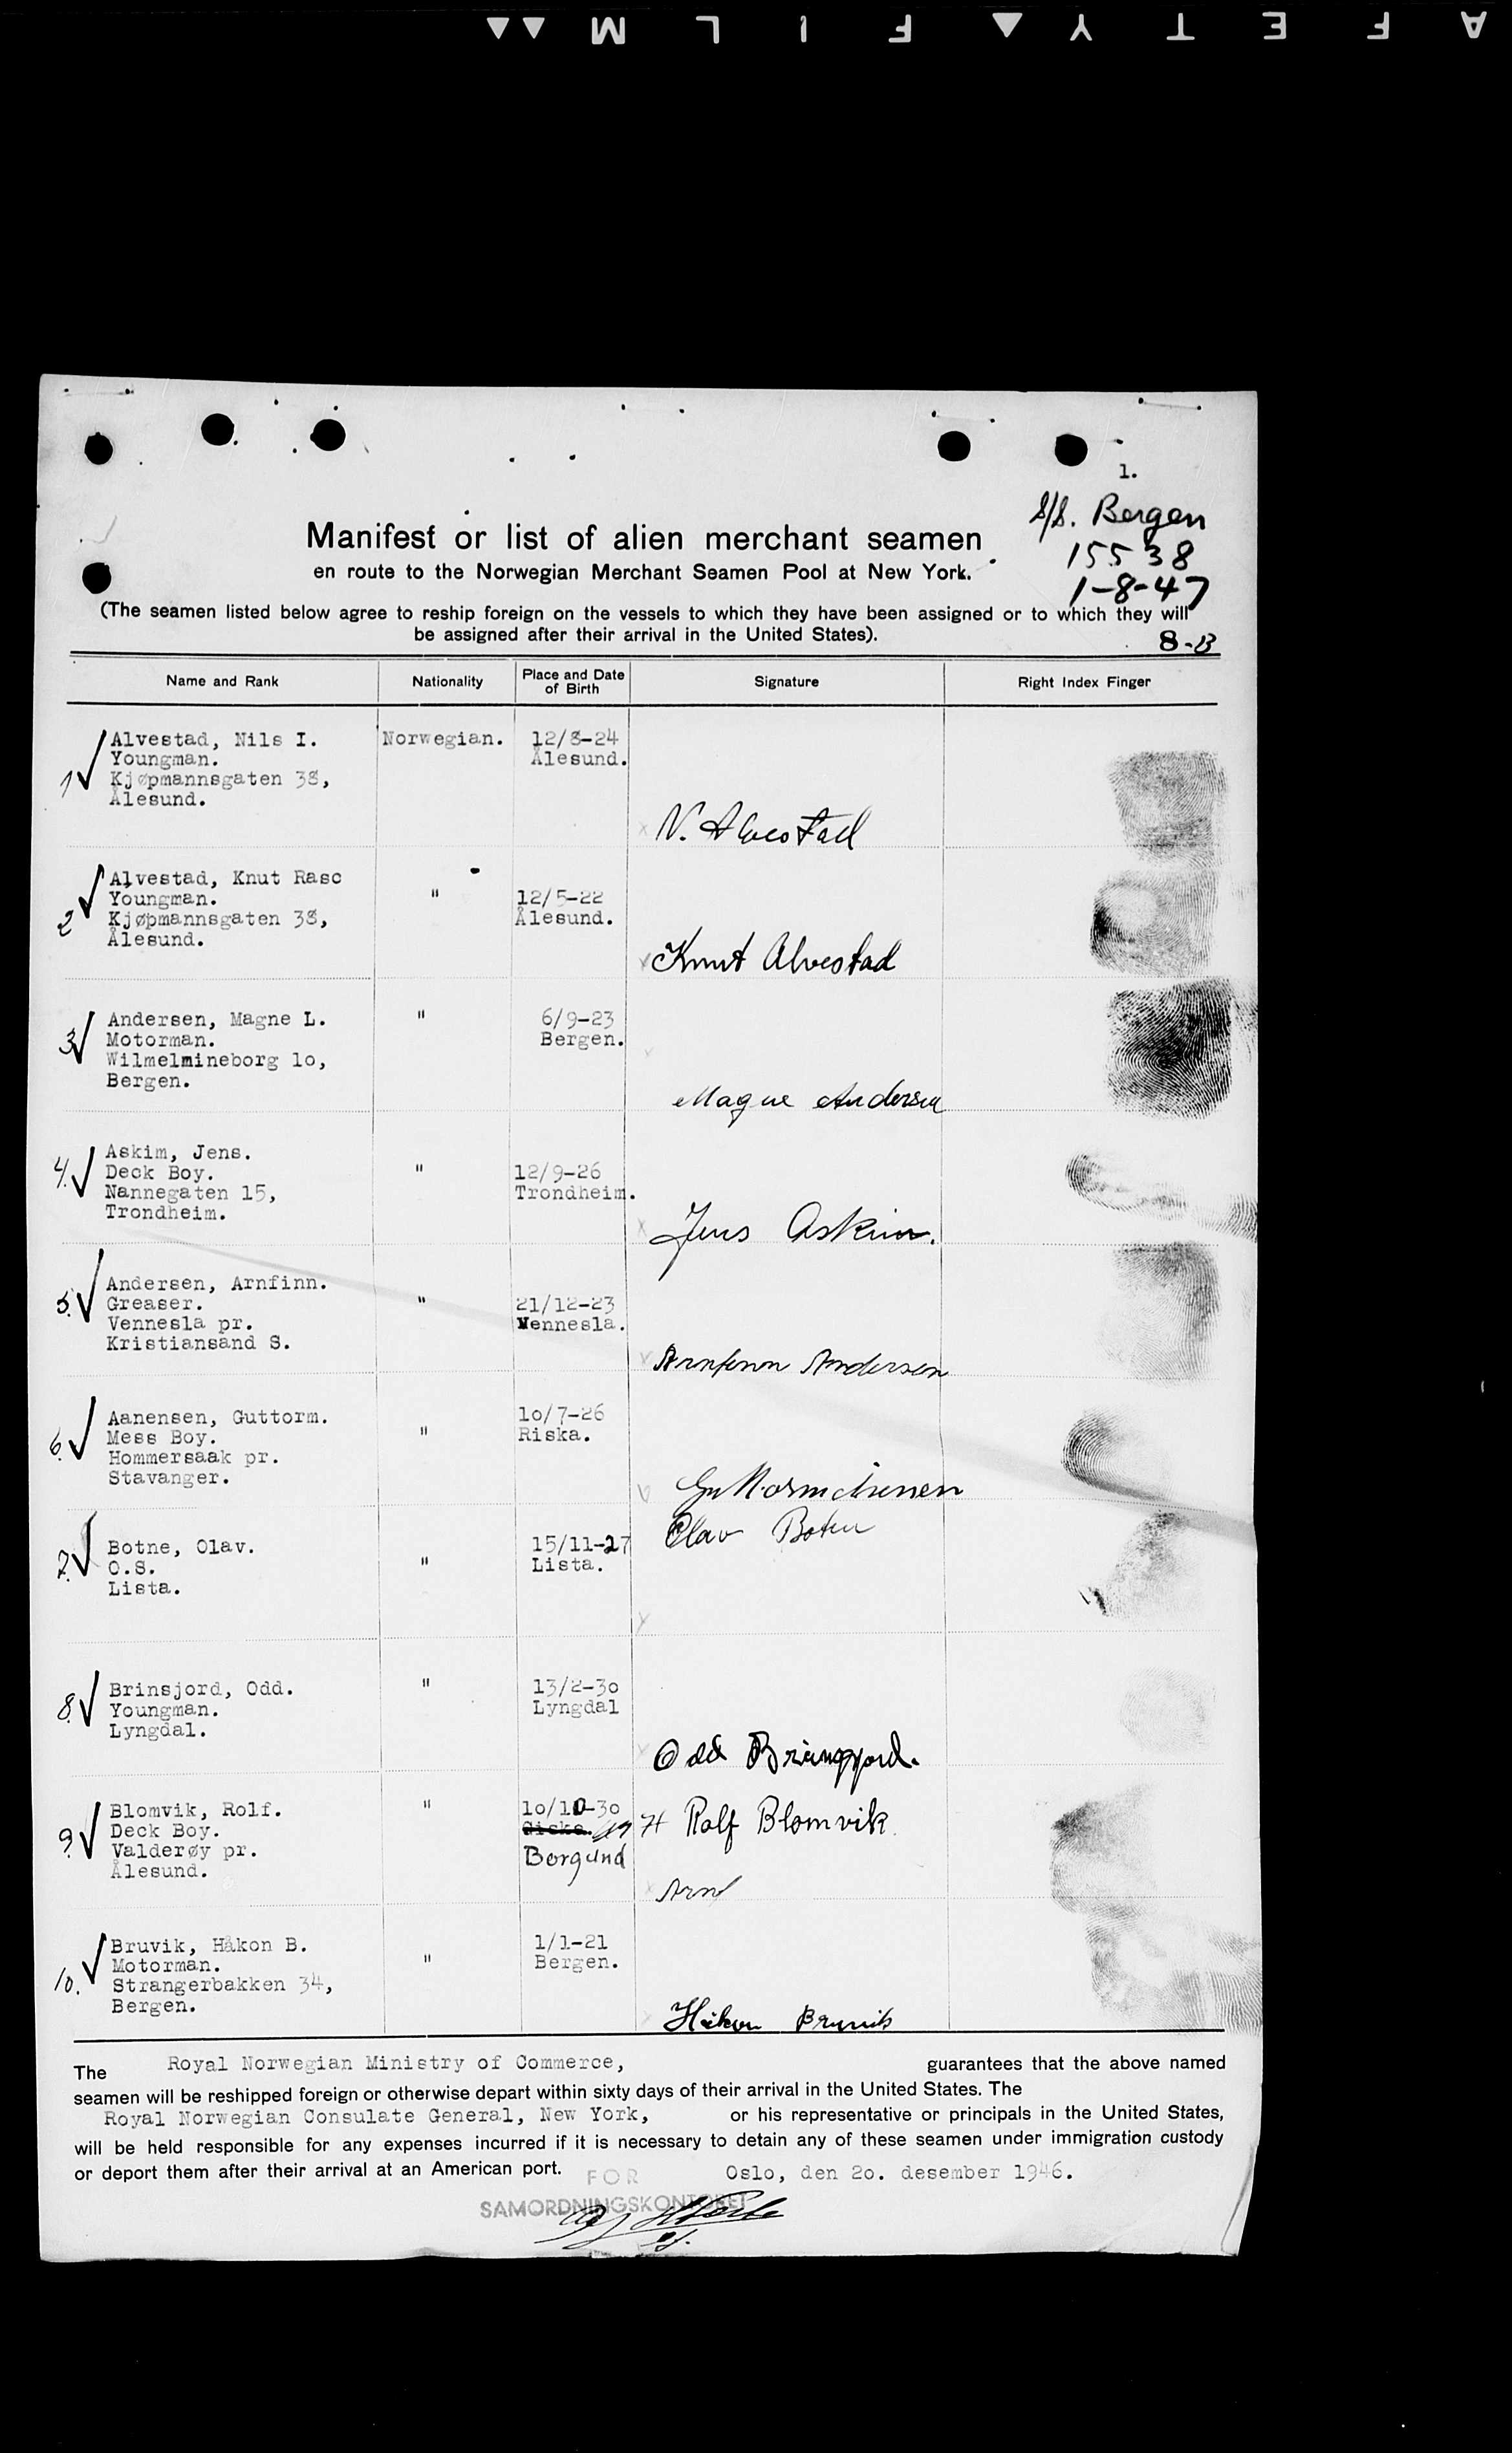 AFETY▲FILM▲▲
1.
S/S. Bergen
15538
1-8-47
Manifest or list of alien merchant seamen
en route to the Norwegian Merchant Seamen Pool at New York.
(The seamen listed below agree to reship foreign on the vessels to which they have been assigned or to which they will
be assigned after their arrival in the United States).
8-B
Name and Rank Nationality Place and Date of Birth Signature Right Index Finger
1 ✓ Alvestad, Nils I. Norwegian. 12/8-24
Youngman. Ålesund.
Kjøpmannsgaten 38,
Ålesund.
N. Alvestad
2 ✓ Alvestad, Knut Rasc
Youngman. " 12/5-22
Kjøpmannsgaten 38, Ålesund.
Ålesund.
Knut Alvestad
3 ✓ Andersen, Magne L. " 6/9-23
Motorman. Bergen.
Wilmelmineborg 1o,
Bergen.
Magne Andersen
4. ✓ Askim, Jens.
Deck Boy. " 12/9-26
Nannegaten 15, Trondheim.
Trondheim.
Jens Askim.
5. ✓ Andersen, Arnfinn.
Greaser. " 21/12-23
Vennesla pr. Vennesla.
Kristiansand S.
Arnfinn Andersen
6. ✓ Aanensen, Guttorm. 1o/7-26
Mess Boy. " Riska.
Hommersaak pr.
Stavanger.
Guttorm Aanensen
Olav Botne
7. ✓ Botne, Olav. 15/11-27
O.S. " Lista.
Lista.
8. ✓ Brinsjord, Odd. " 13/2-3o
Youngman. Lyngdal
Lyngdal.
Odd Brinsjord.
9. ✓ Blomvik, Rolf. " 1o/10-3o
Deck Boy. Giske.
Valderøy pr. Borgund
Ålesund.
Rolf Blomvik
Arnf
10. ✓ Bruvik, Håkon B. 1/1-21
Motorman. " Bergen.
Strangerbakken 34,
Bergen.
Håkon Bruvik
The Royal Norwegian Ministry of Commerce, guarantees that the above named
seamen will be reshipped foreign or otherwise depart within sixty days of their arrival in the United States. The
Royal Norwegian Consulate General, New York, or his representative or principals in the United States,
will be held responsible for any expenses incurred if it is necessary to detain any of these seamen under immigration custody
or deport them after their arrival at an American port.
FOR Oslo, den 2o. desember 1946.
SAMORDNINGSKONTORET